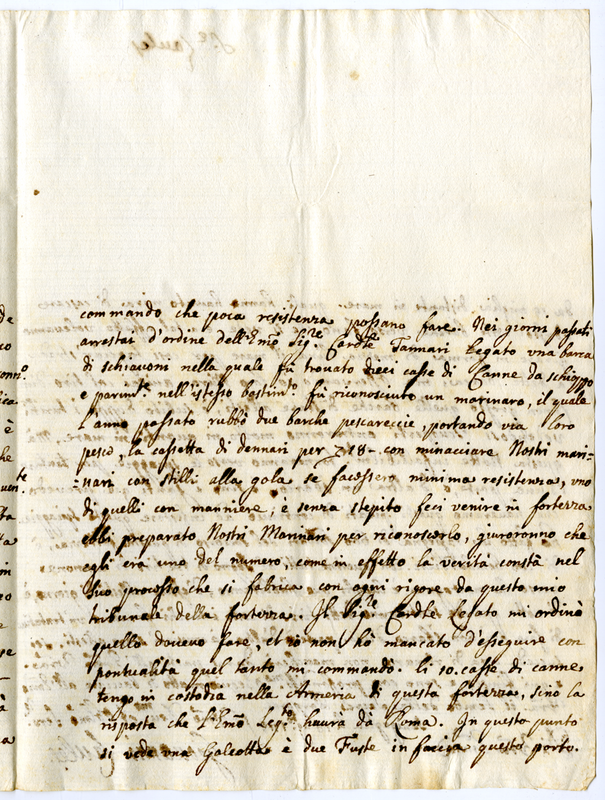 commando che poca resistenza possano fare. Nei giorni passati
arrestai d'ordine dell'Emo Sigre Cardle Tannari Legato vna barca
di schiauoni nella quale fù trouato dieci casse di Canne da schioppo
e parimte nell'istesso bastimto fù riconosciuto un marinaro, il quale
l'anno passato rubbò due barche pescareccie, portando via loro
pesce, la cassetta di dennari per 18- con minacciare Nostri mari=
=nari con stilli alla gola se facessero minima resistenza, vno
di quelli con manniere, e senza stepito feci venire in fortezza
ebbi preparato Nostri Marinari per riconoscerlo, giuroronno che
egli era uno del numero, come in effetto la verità constà nel
suo processo che si fabrica con ogni rigore da questo mio
tribunale della fortezza. Il Sigre Cardle Legato mi ordinò
quello doueuo fare, et io non hò mancato d'esseguire con
pontualità quel tanto mi commandò. li 10. casse di canne
tengo in custodia nella Armeria di questa fortezza, sino la
risposta che l'Emo Legto haura da Roma. In questo punto
si vede vna Galeotta è due Fuste in faccia questo porto.